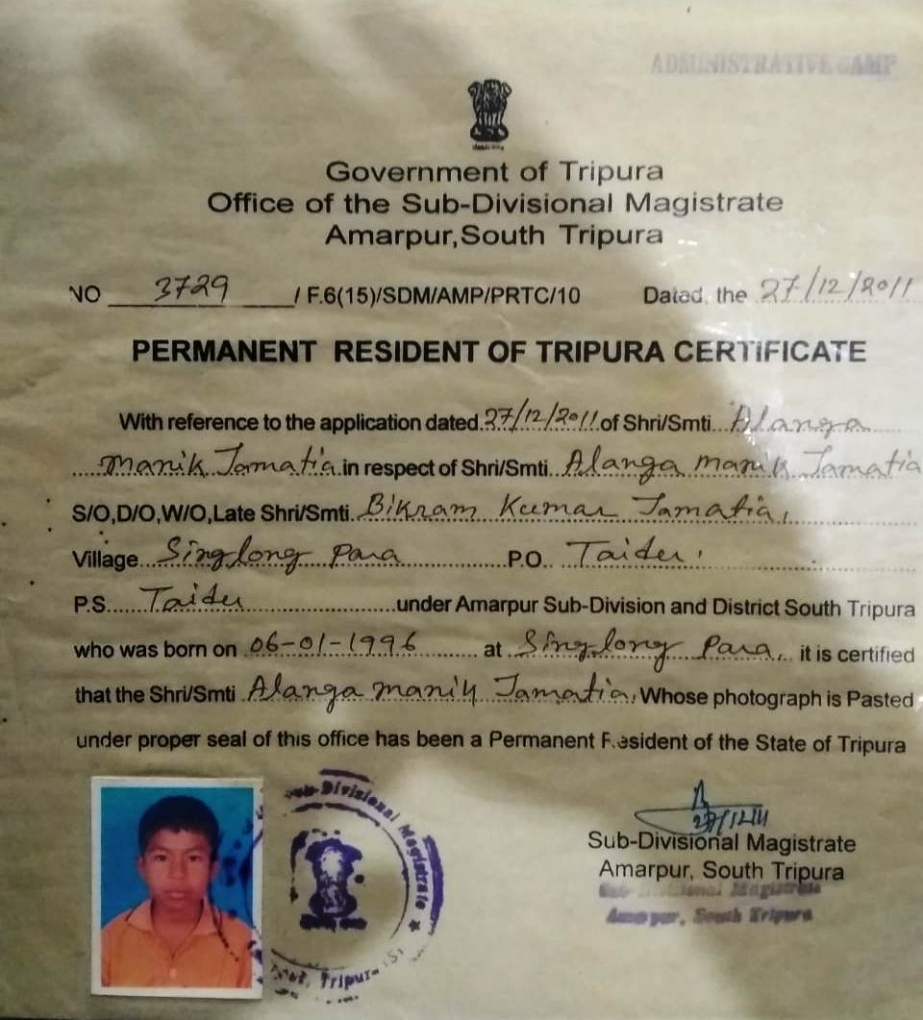 ADMINISTRATIVE CAMP
Government of Tripura
Office of the Sub-Divisional Magistrate
Amarpur,South Tripura
NO 3729 / F.6(15)/SDM/AMP/PRTC/10 Dated, the 27/12/2011
PERMANENT RESIDENT OF TRIPURA CERTIFICATE
With reference to the application dated 27/12/2011 of Shri/Smti Alanga
Manik Jamatia in respect of Shri/Smti Alanga Manik Jamatia
S/O,D/O,W/O,Late Shri/Smti. Bikram Kumar Jamatia,
Village Singlong Para P.O. Taidu,
P.S. Taidu under Amarpur Sub-Division and District South Tripura
who was born on 06-01-1996 at Singlong Para, it is certified
that the Shri/Smti Alanga Manik Jamatia, Whose photograph is Pasted
under proper seal of this office has been a Permanent Resident of the State of Tripura
Sub-Divisional Magistrate
Tripura
27/12/11
Sub-Divisional Magistrate
Amarpur, South Tripura
Sub-Divisional Magistrate
Amarpur, South Tripura